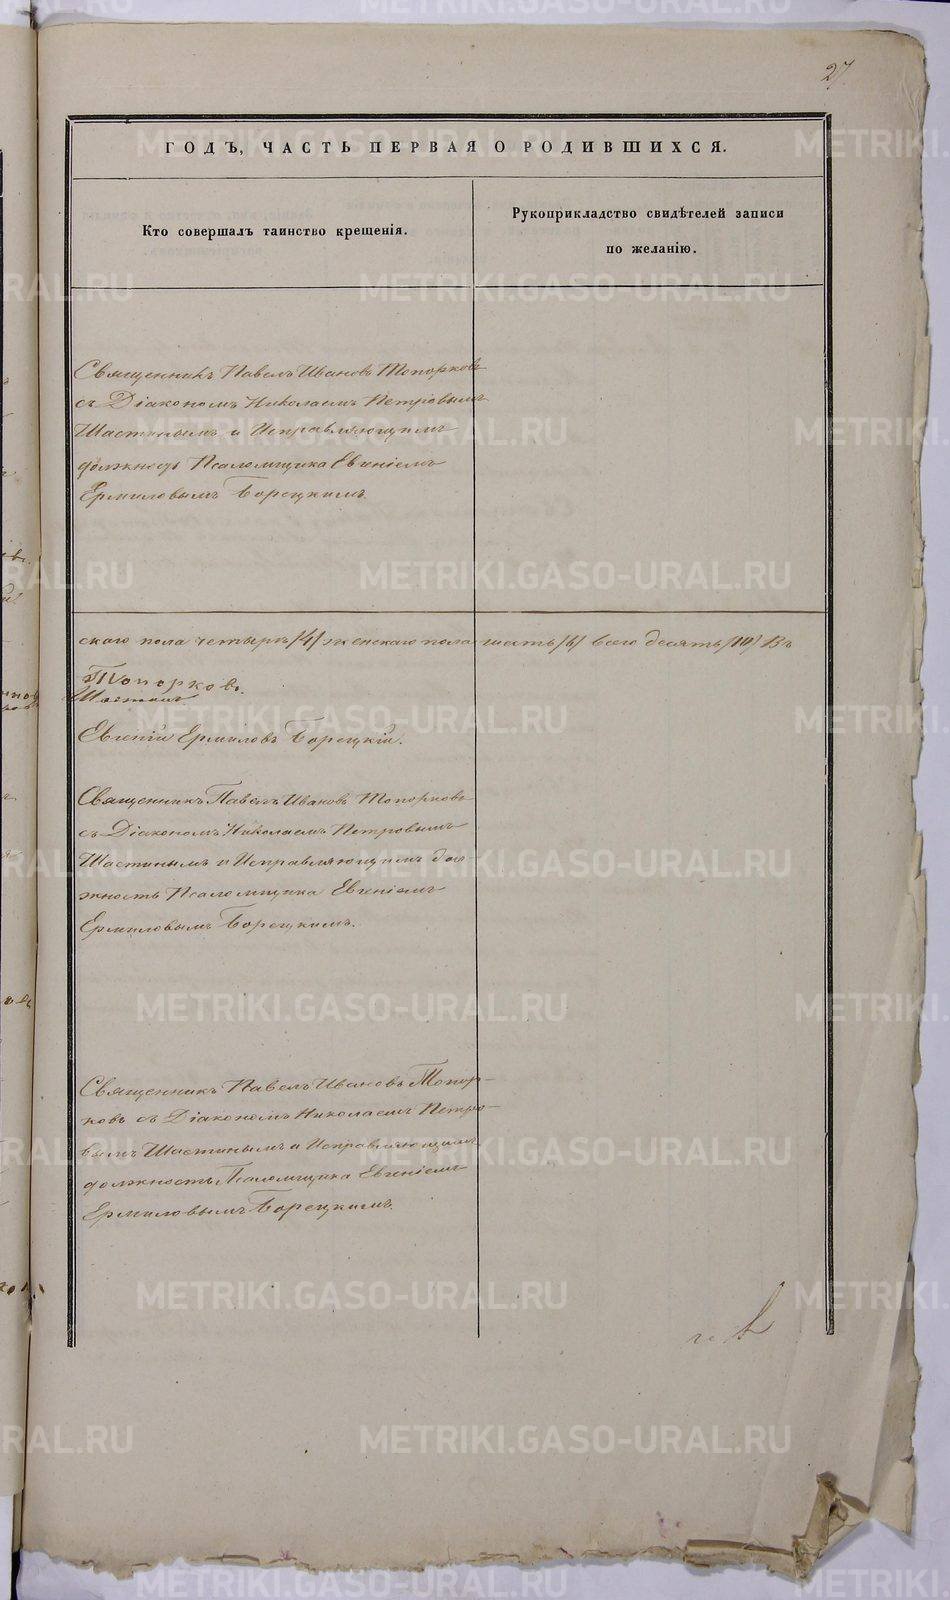 27.
ГОДЪ, ЧАСТЬ ПЕРВАЯ О РОДИВШИХСЯ.
Кто совершалъ таинство крещенія.
Рукоприкладство свидѣтелей записи
по желанію.
Священникъ Павелъ Ивановъ Топорковъ
съ Діакономъ Николаемъ Петровымъ
Шастинымъ и Исправляющимъ
должность Псаломщика Евгеніемъ
Ермиловымъ Борецкимъ
скаго пола четыре /4/ женскаго пола шесть /6/ всего десять /10/ Въ
Топорковъ.
Шастинъ
Евгеній Ермиловъ Борецкій.
Священникъ Павелъ Ивановъ Топорковъ
съ Діакономъ Николаемъ Петровымъ
Шастинымъ и Исправляющимъ дол-
жность Псаломщика Евгеніемъ
Ермиловымъ Борецкимъ.
Священникъ Павелъ Ивановъ Топор-
ковъ съ Діакономъ Николаемъ Петро-
вымъ Шастинымъ и Исправляющимъ
должность Псаломщика Евгеніемъ
Ермиловымъ Борецкимъ.
METRIKI.GASO-URAL.RU